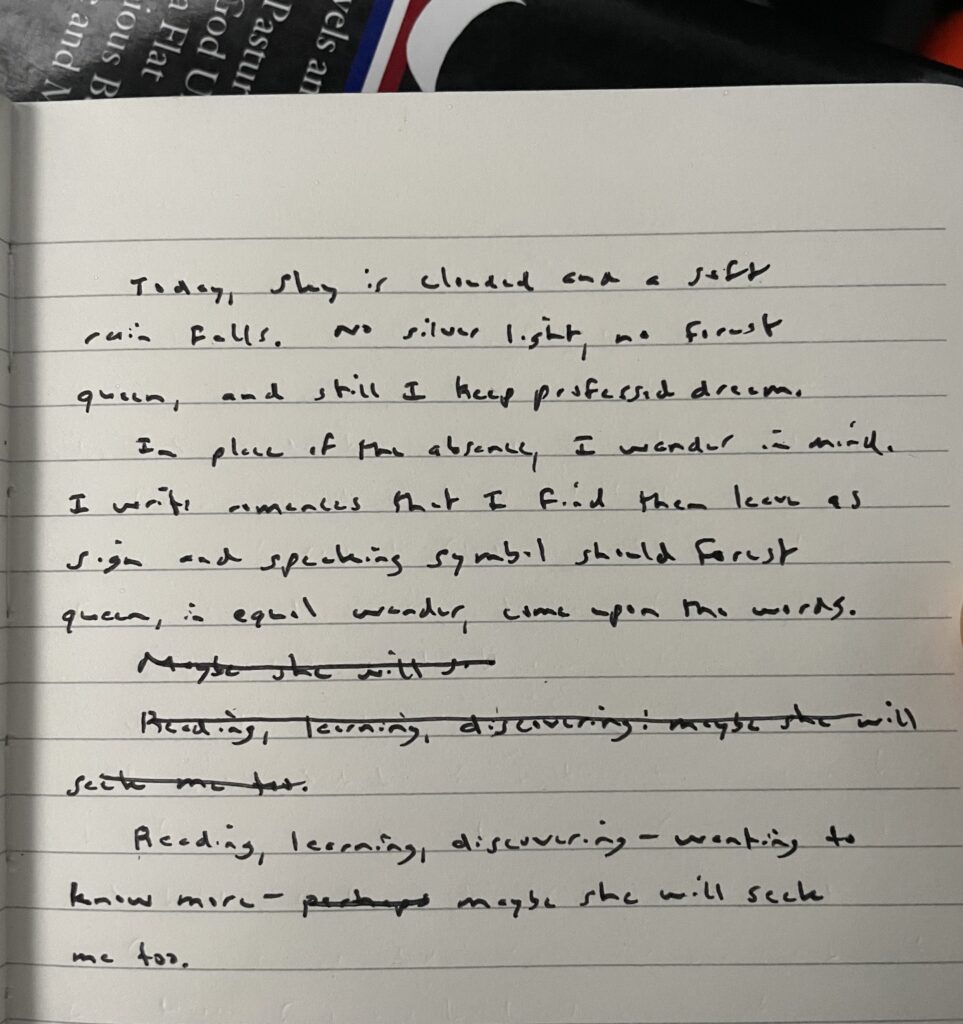 vels an
Pastur
God U
a Flat
ious B
and M
Today, sky is clouded and a soft
rain falls. No silver light, no forest
queen, and still I keep professed dream.
In place of the absence, I wander in mind.
I write romances that I find them leave as
sign and speaking symbol should forest
queen, in equal wander, come upon the words.
Maybe she will
Reading, learning, discovering: maybe she will
seek me too.
Reading, learning, discovering – wanting to
know more – perhaps maybe she will seek
me too.